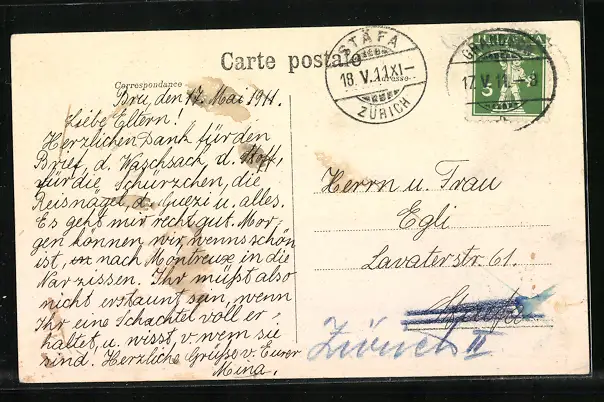 Carte postale
Correspondance
Adresse
STÄFA
18. V. 11 XI–
ZÜRICH
17. V. 11
5
HELVETIA
Bru, den 17. Mai 1911.
Liebe Eltern!
Herzlichen Dank für den
Brief, d. Waschsack, d. Stoff,
für die Schürzchen, die
Reisnägel, d. Guezi u. alles.
Es geht mir recht gut. Mor-
gen können wir, wenns schön
ist, nach Montreux in die
Narzissen. Ihr müsst also
nicht erstaunt sein, wenn
Ihr eine Schachtel voll er-
haltet, u. wisst, v. wem sie
sind. Herzliche Grüsse v. Eurer
Mina.
Herrn u. Frau
Egli
Lavaterstr. 61.
Zürich II